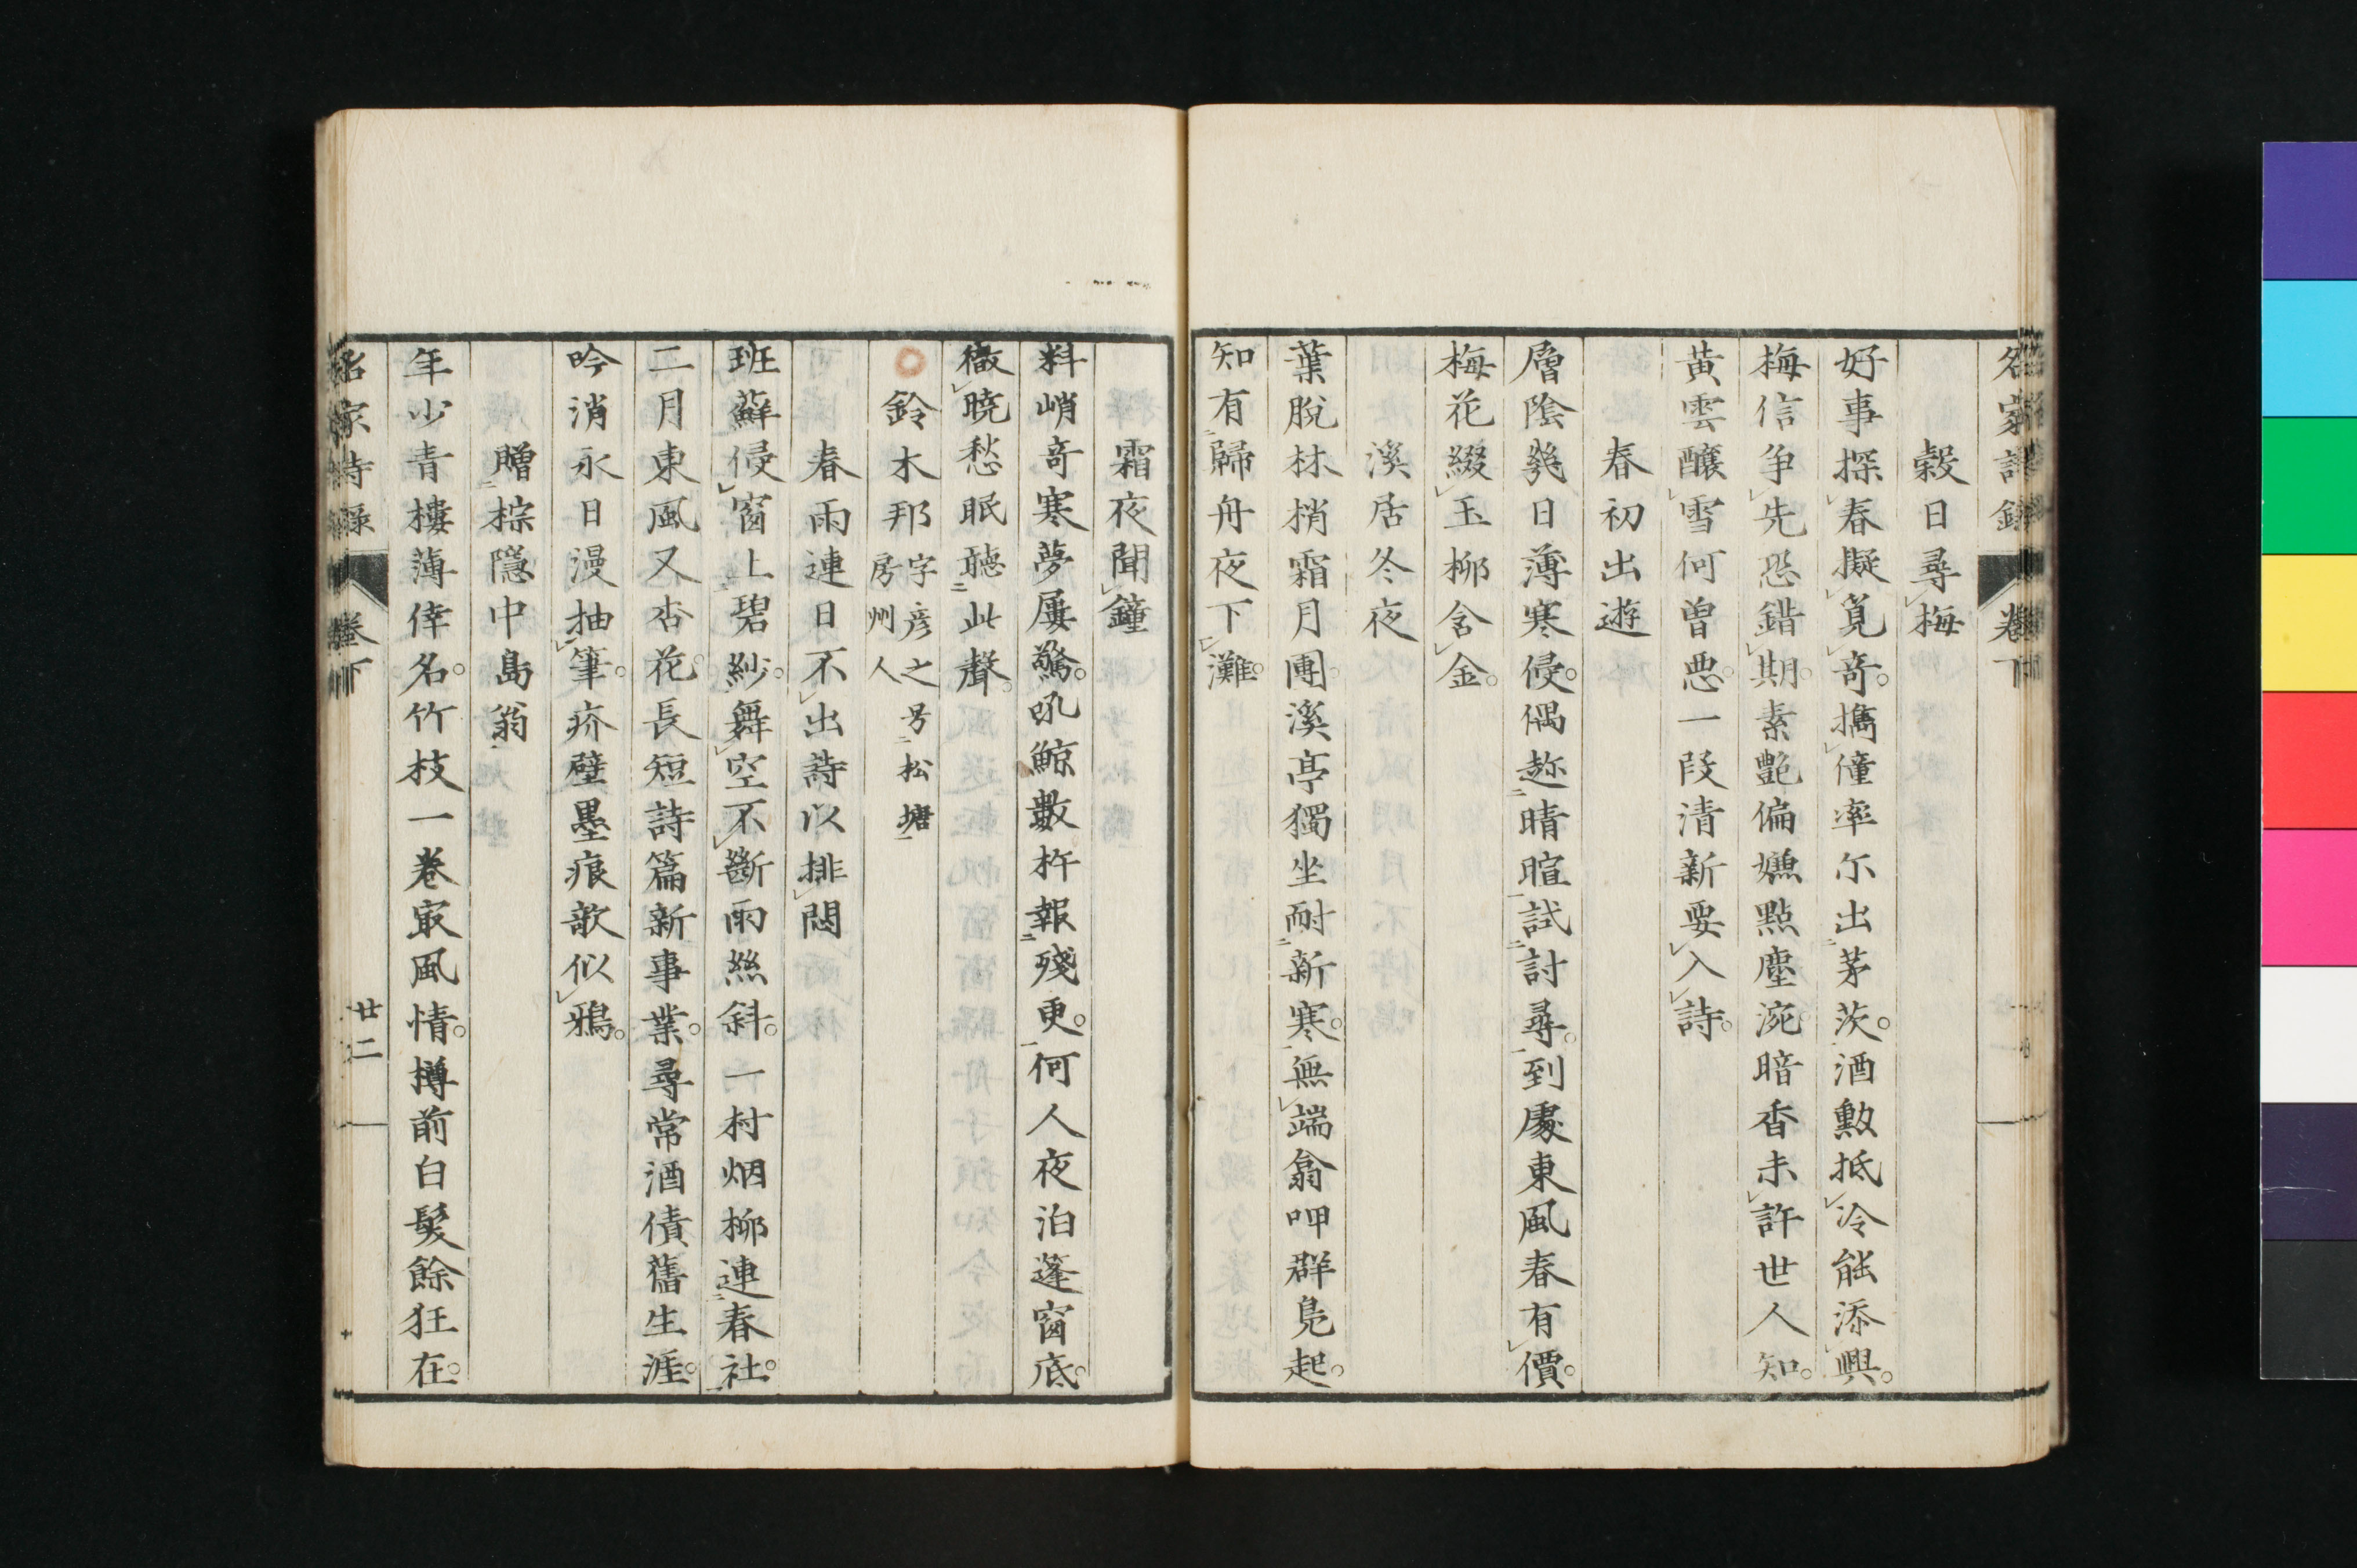 名家詩録 卷下
穀日尋梅
好事探春擬覓奇。擕僮率尓出茅茨。酒勲抵冷能添興。
梅信争先恐錯期。素艷偏嫌點塵涴。暗香未許世人知。
黄雲醸雪何曽悪。一段清新要入詩。
春初出遊
層陰幾日薄寒侵。偶趂晴暄試討尋。到處東風春有價。
梅花綴玉柳含金。
溪居冬夜
葉脱林梢霜月團。溪亭獨坐耐新寒。無端翕呷群鳬起。
知有歸舟夜下灘。
霜夜聞鐘
料峭竒寒夢屢驚。吼鯨數杵報殘更。何人夜泊蓬窗底。
徹曉愁眠聽此聲。
鈴木邦 字彦之 号松塘 房州人
春雨連日不出詩以排悶
班蘚侵窗上碧紗。舞空不斷雨絲斜。一村烟柳連春社。
二月東風又杏花。長短詩篇新事業。尋常酒債舊生涯。
吟消永日漫抽筆。疥壁墨痕歌似鴉。
贈棕隱中島翁
年少青樓薄倖名。竹枝一卷寂風情。樽前白髮餘狂在。
名家詩録 卷下 廿二